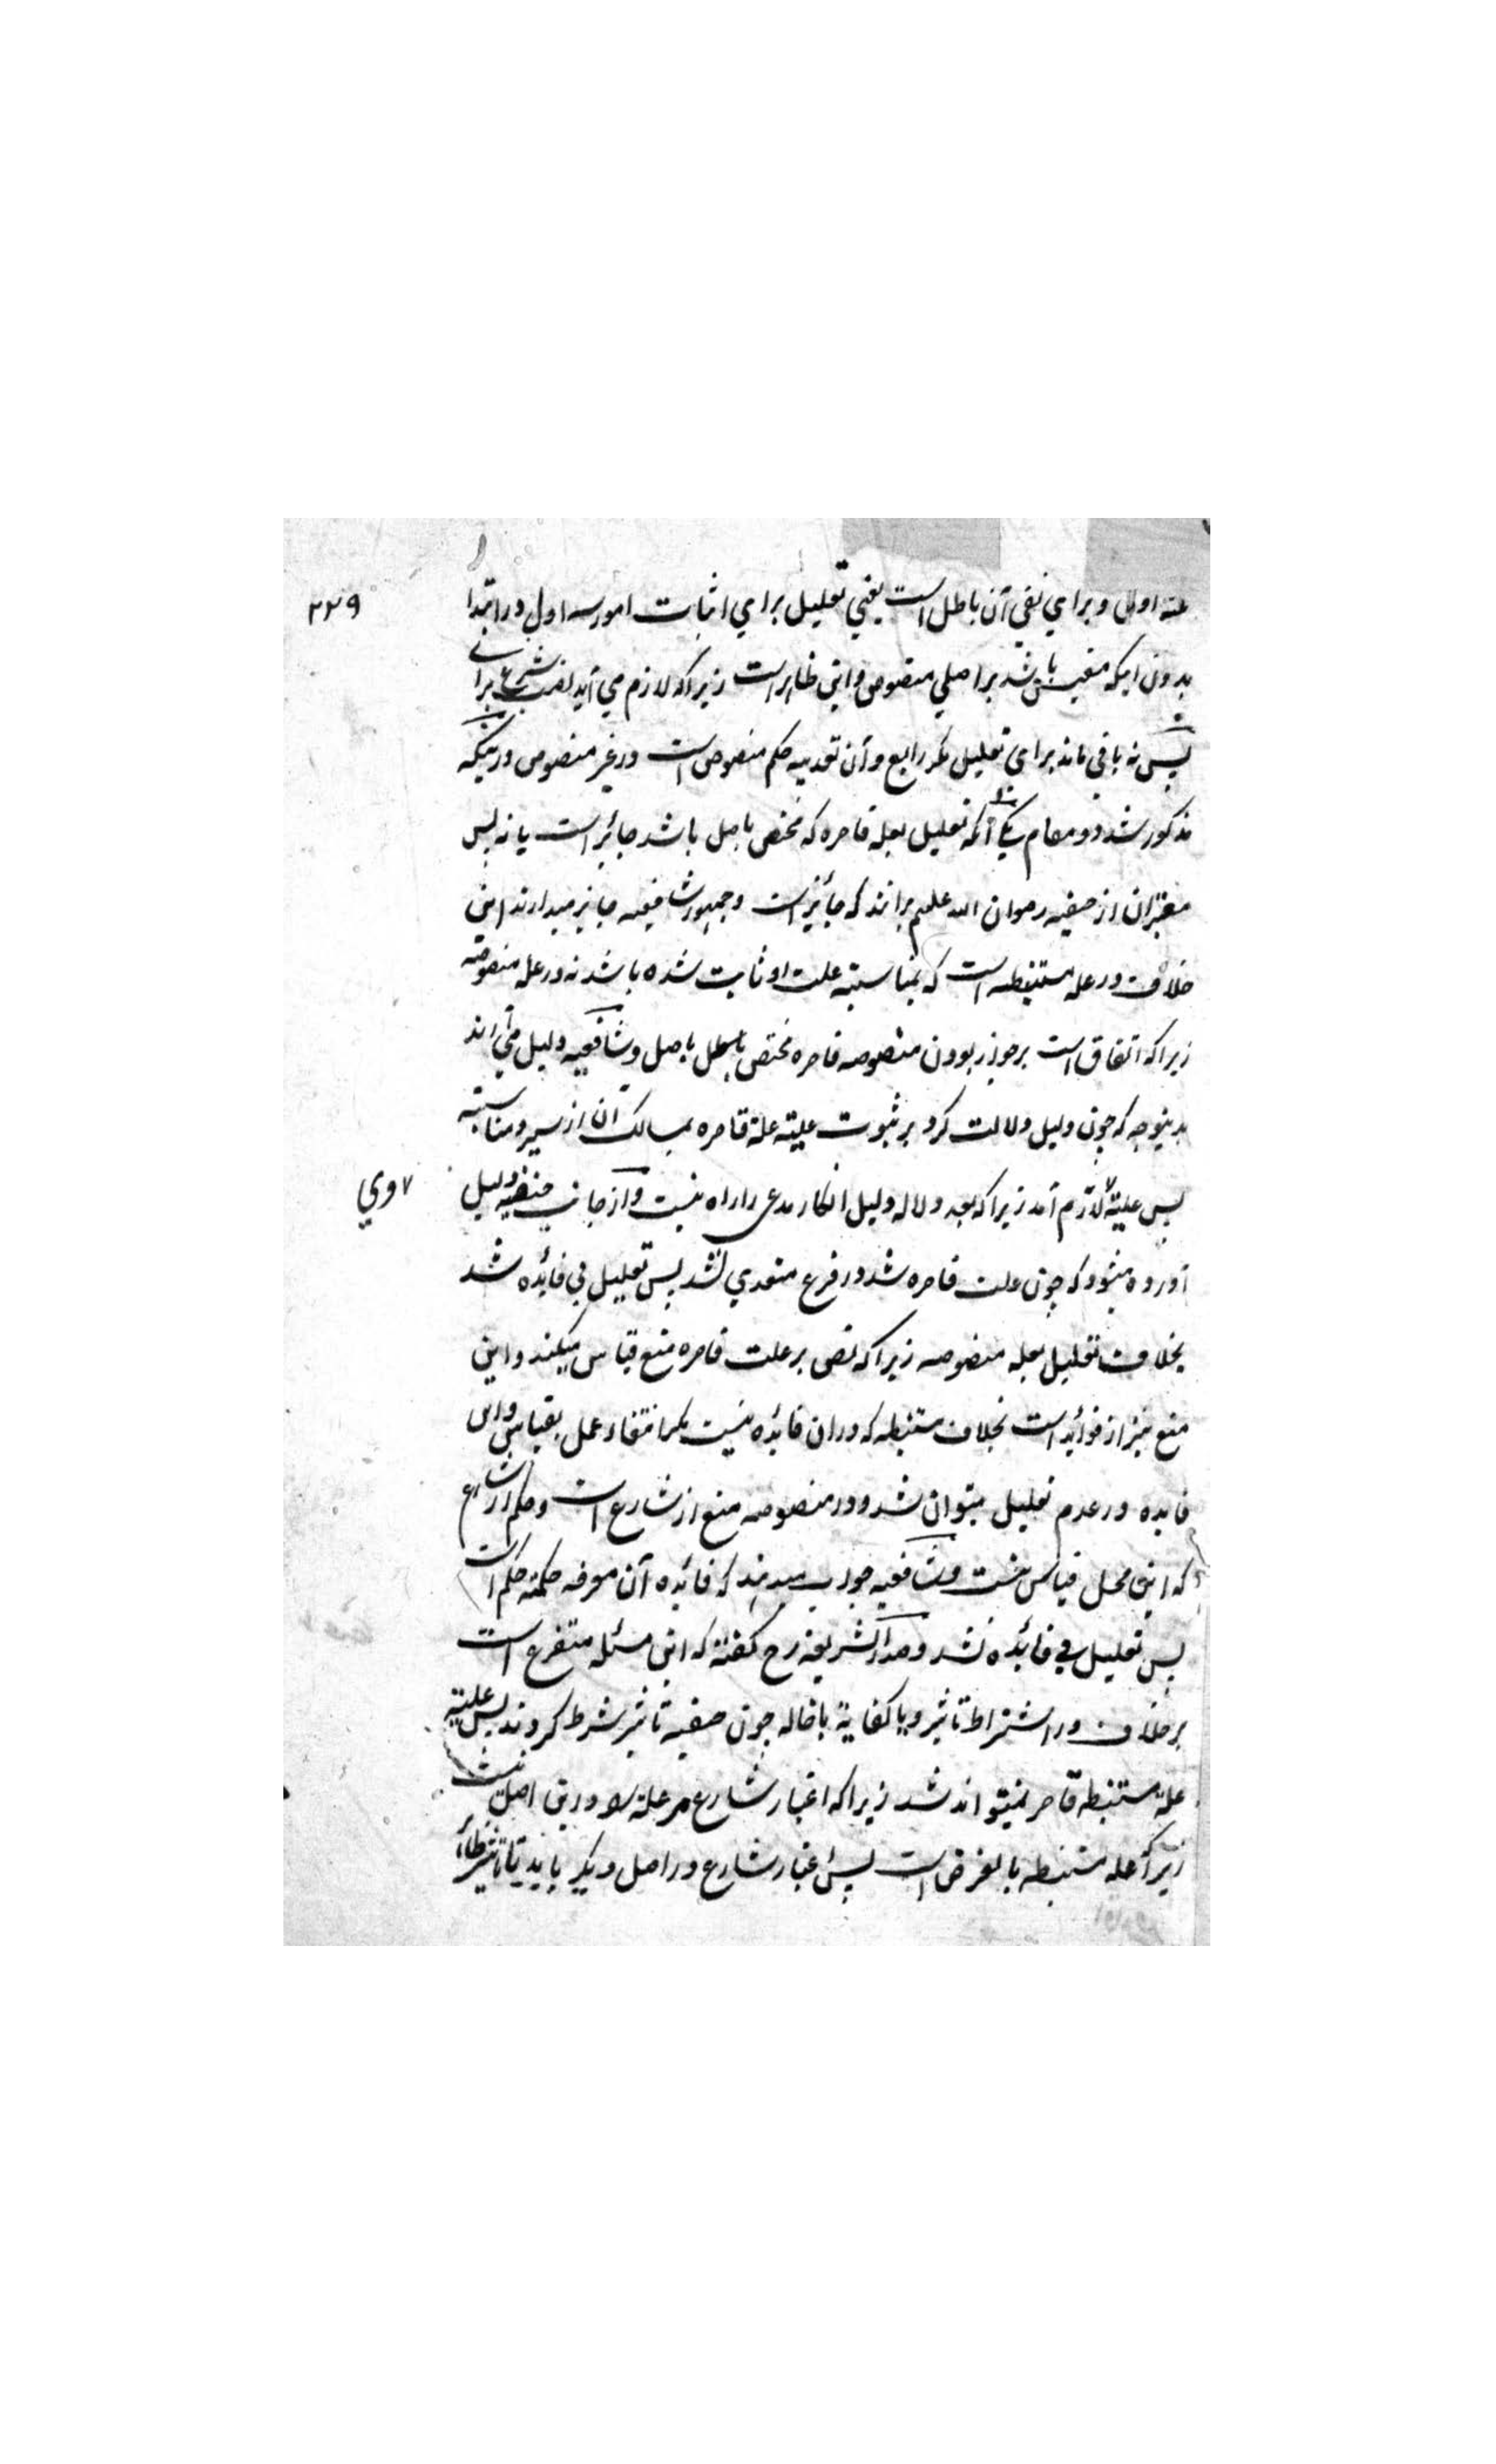 ۲۲۹
علة اولی و برای نفی آن باطل است یعنی تعلیل برای اثبات امور سه اول در ابتدا
بدون اینکه مقیس باشد بر اصلی منصوص و این ظاهر است زیرا که لازم می آید نصب شرع برای
پس نه باقی ماند برای تعلیل مگر رابع و آن تعدیه حکم منصوص است در غیر منصوص و دریکه
مذکور شد دو مقام یکی آنکه تعلیل بعله قاصره که مختص باصل باشد جائز است یا نه پس
از حنفیه رضوان الله علیهم برانند که جائز است و جمهور شافعیه جایز میدارند این
خلاف در علة مستنبطه است که بمناسبته علت او ثابت شده باشد نه در علة منصوصه
زیرا که اتفاق است بر جواز بودن منصوصه قاصره مختص باصل و شافعیه دلیل می آرند
بدینوجه که چون دلیل دلالت کرد بر ثبوت علیته علة قاصره بمسالک آن از سبر و مناسبته
پس علیة لازم آمد زیرا که بعد دلاله دلیل انکار مدعی را راه نیست و از جانب حنفیه دلیل
وی
آورده میشود که چون علت قاصره شد در فرع متعدی نشد پس تعلیل بی فائده شد
بخلاف تعلیل بعله منصوصه زیرا که نص بر علت قاصره منع قیاس میکند و این
منع نیز از فوائد است بخلاف مستنبطه که دران فائده نیست مگر انتفاء عمل بقیاس و این
فایده در عدم تعلیل میتوان شد و در منصوصه منع از شارع است و حکم از شارع
که این محل قیاس نیست و شافعیه جواب میدهند که فائده آن معرفه حکمة حکم است
پس تعلیل بی فائده نشد و صدر الشریعه رح گفته که این مسئله متفرع است
بر خلاف در اشتراط تاثیر و یا کفایة باخاله چون حنفیه تاثیر شرط کردند پس علیته
علة مستنبطه قاصر نمیتواند شد زیرا که اعتبار شارع مر علة را در این اصل نیست
زیرا که علة مستنبطه بالفرض است پس اعتبار شارع در اصل دیگر باید تا تاثیر